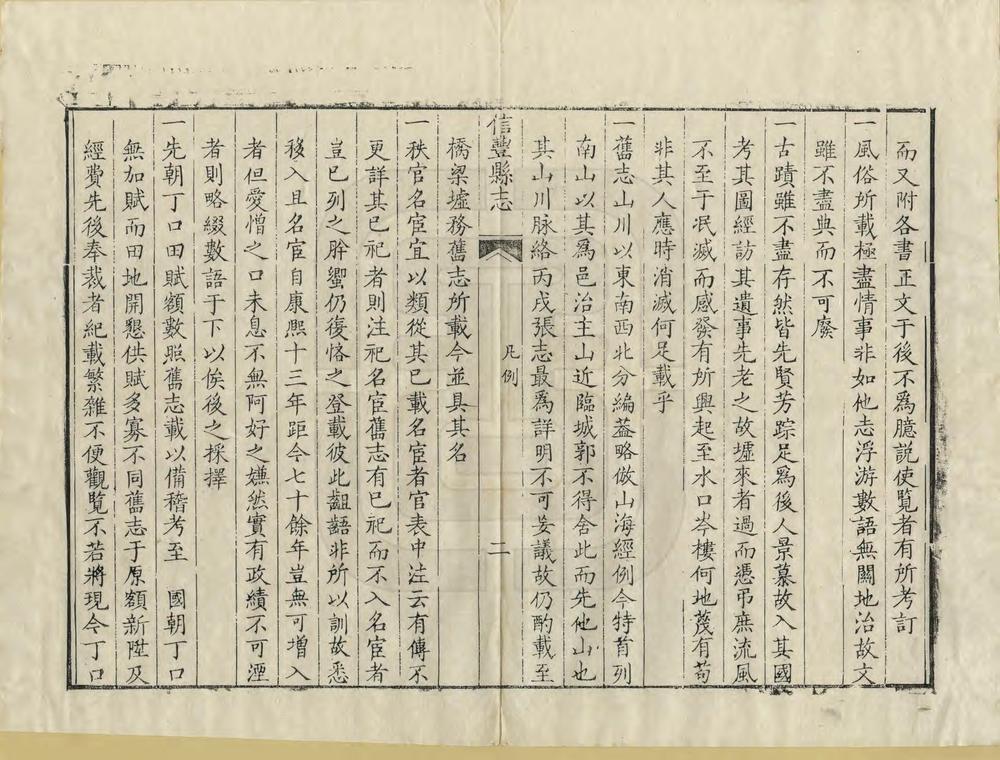 而又附各書正文于後不為臆説使覧者有所考訂
一風俗所載極盡情事非如他志浮游數語無關地治故文
雖不盡典而不可廢
一古蹟雖不盡存然皆先賢芳踪足為後人景慕故入其國
考其圖經訪其遺事先老之故墟來者過而憑弔庶流風
不至于泯滅而感發有所興起至水口岑樓何地蔑有苟
非其人應時消滅何足載乎
一舊志山川以東南西北分編葢略倣山海經例今特首列
南山以其為邑治主山近臨城郭不得舍此而先他山也
其山川脉絡丙戌張志最為詳明不可妄議故仍酌載至
信豐縣志
凡例
二
橋梁墟務舊志所載今並具其名
一秩官名宦宜以類從其已載名宦者官表中注云有傳不
更詳其已祀者則注祀名宦舊志有已祀而不入名宦者
豈已列之肸蠁仍復悋之登載彼此齟齬非所以訓故悉
移入且名宦自康熙十三年距今七十餘年豈無可增入
者但愛憎之口未息不無阿好之嫌然實有政績不可湮
者則略綴數語于下以俟後之採擇
一先朝丁口田賦額數照舊志載以備稽考至 國朝丁口
無加賦而田地開懇供賦多寡不同舊志于原額新陞及
經費先後奉裁者紀載繁雜不便觀覧不若將現今丁口